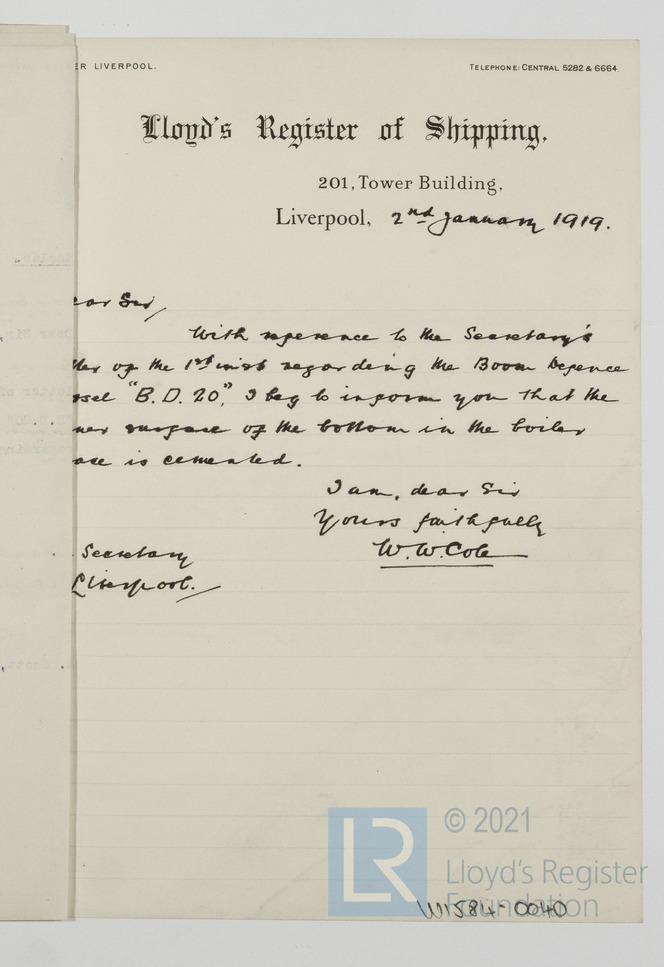 ER LIVERPOOL.
TELEPHONE: CENTRAL 5282 & 6664.
Lloyd's Register of Shipping,
201, Tower Building,
Liverpool, 2nd January 1919.
ear Sir,
With reference to the Secretary's
tter of the 1st inst regarding the Boom Defence
ssel "B.D. 20", I beg to inform you that the
ner surface of the bottom in the boiler
ase is cemented.
I am, dear Sir
Yours faithfully
W. W. Cole
Secretary
Liverpool.
LR
© 2021
Lloyd's Register
Foundation
W1584-0040